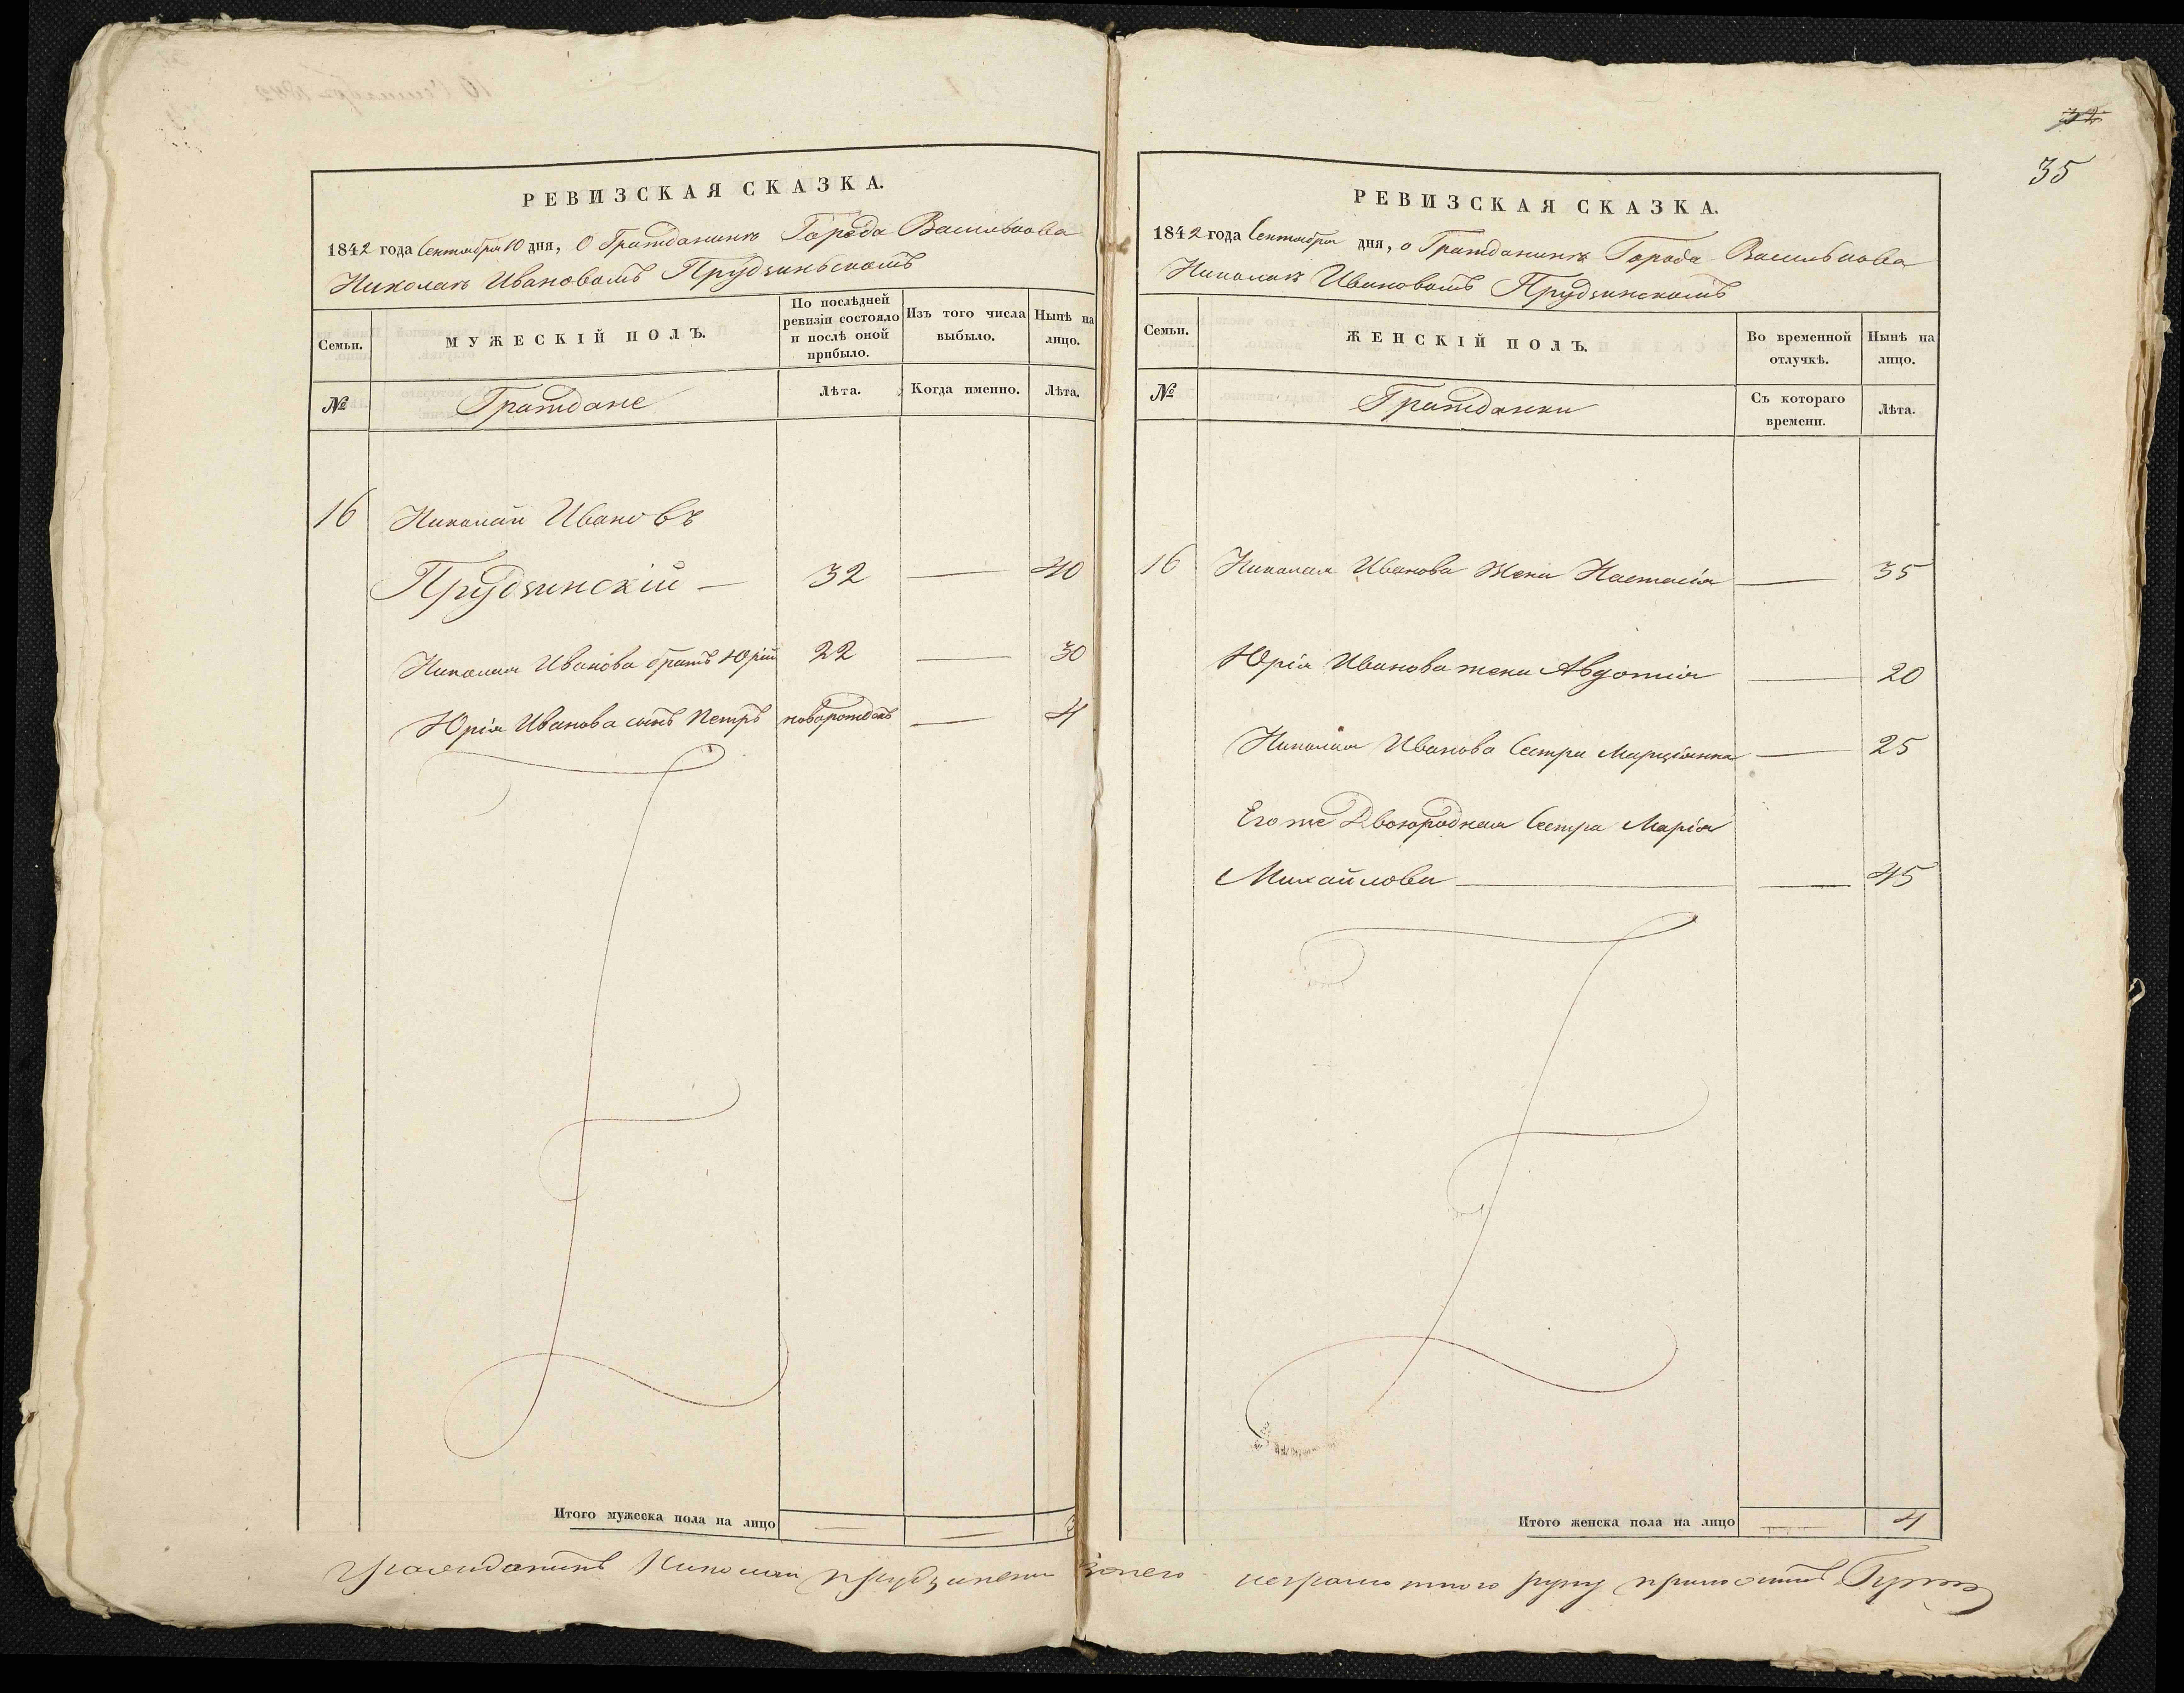 32
35
РЕВИЗСКАЯ СКАЗКА.
1842 года Сентября 10 дня, О Гражданинѣ Города Василькова
Николаѣ Ивановомъ Прудзиньскомъ
Семьи.
МУЖЕСКІЙ ПОЛЪ.
По послѣдней ревизіи состояло и послѣ оной прибыло.
Изъ того числа выбыло.
Нынѣ на лицо.
№
Граждане
Лѣта.
Когда именно.
Лѣта.
16 Николай Ивановъ
Прудзинскій — 32 — 40
Николая Иванова братъ Юрій 22 — 30
Юрія Иванова сынъ Петръ новорожденъ — 4
Итого мужеска пола на лицо — — 3
РЕВИЗСКАЯ СКАЗКА.
1842 года Сентября дня, о Гражданинѣ Города Василькова
Николаѣ Ивановомъ Прудзинскомъ
Семьи.
ЖЕНСКІЙ ПОЛЪ.
Во временной отлучкѣ.
Нынѣ на лицо.
№
Гражданки
Съ котораго времени.
Лѣта.
16 Николая Иванова Жена Настасія — 35
Юрія Иванова жена Авдотія — 20
Николая Иванова Сестра Марціянна — 25
Егоже Двоюродная Сестра Марія
Михайлова — — 45
Итого женска пола на лицо — 4
Гражданинъ Николай Прудзинскій занего неграмотного руку приложилъ